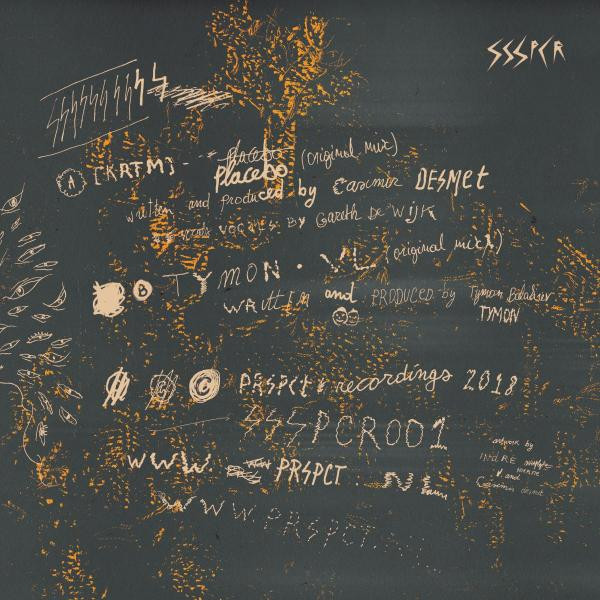 SSSPCR
A [KRTM] --- placebo (original mix)
placebo
written and produced by Casimir DESMET
vocals BY Gareth DE WIJK
B TYMON · VL (original mix)
WRittEN and PRODUCED by Tymon
TYMON
C PRSPCt recordings 2018
SSSPCR001
WWW. PRSPCT. NL
WWW.PRSPCT.
artwork by
and
Casimir desmet